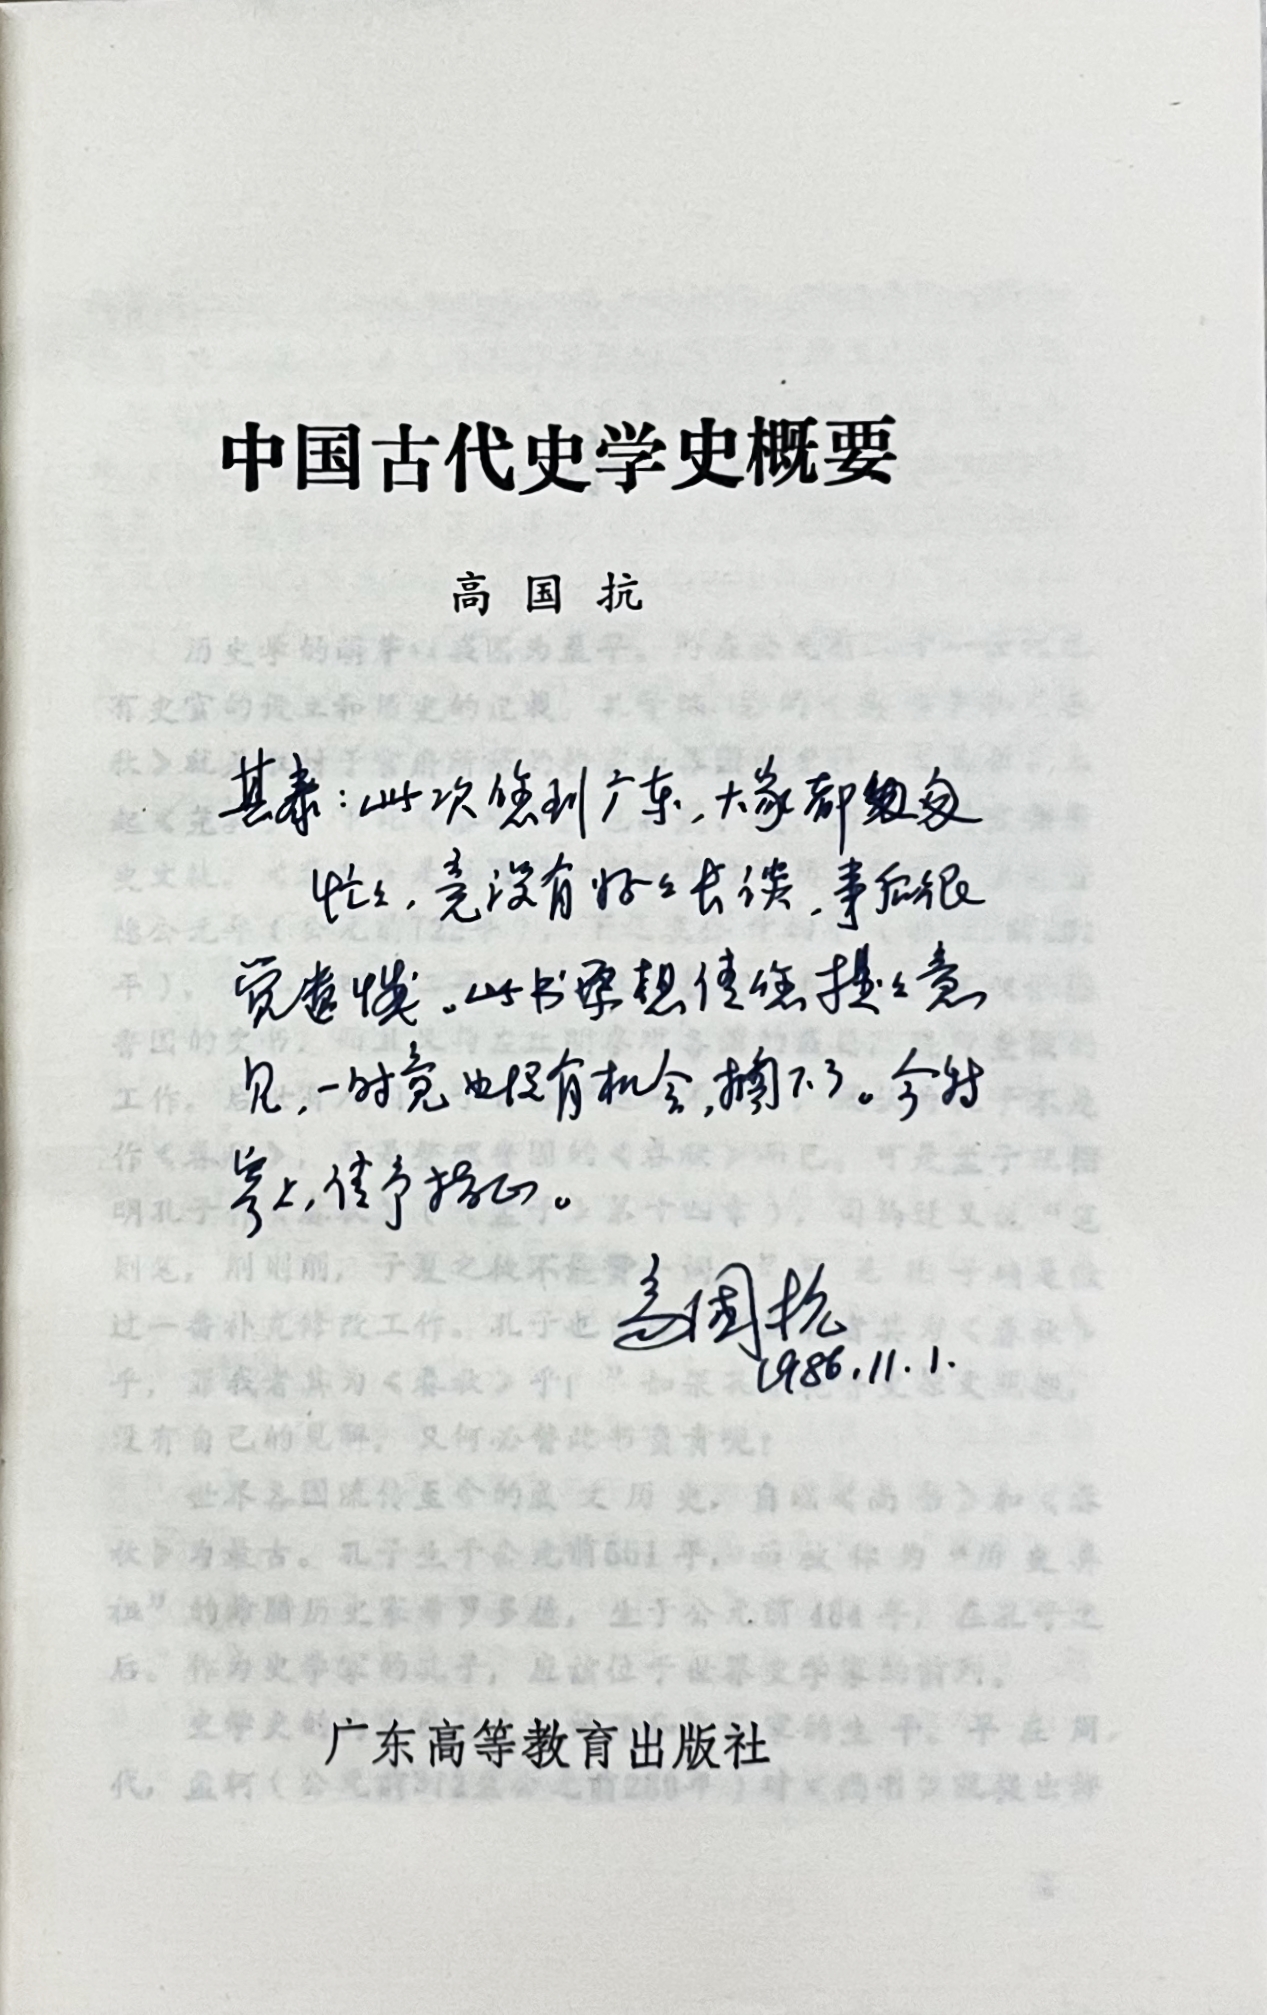 中国古代史学史概要
高国抗
其泰：此次您到广东，大家都匆匆
忙々，竟没有好々长谈，事后很
觉遗憾。此书原想请您提々意
见，一时竟也没有机会，搁下了。今特
寄上，请予指正。
高国抗
1986.11.1.
广东高等教育出版社